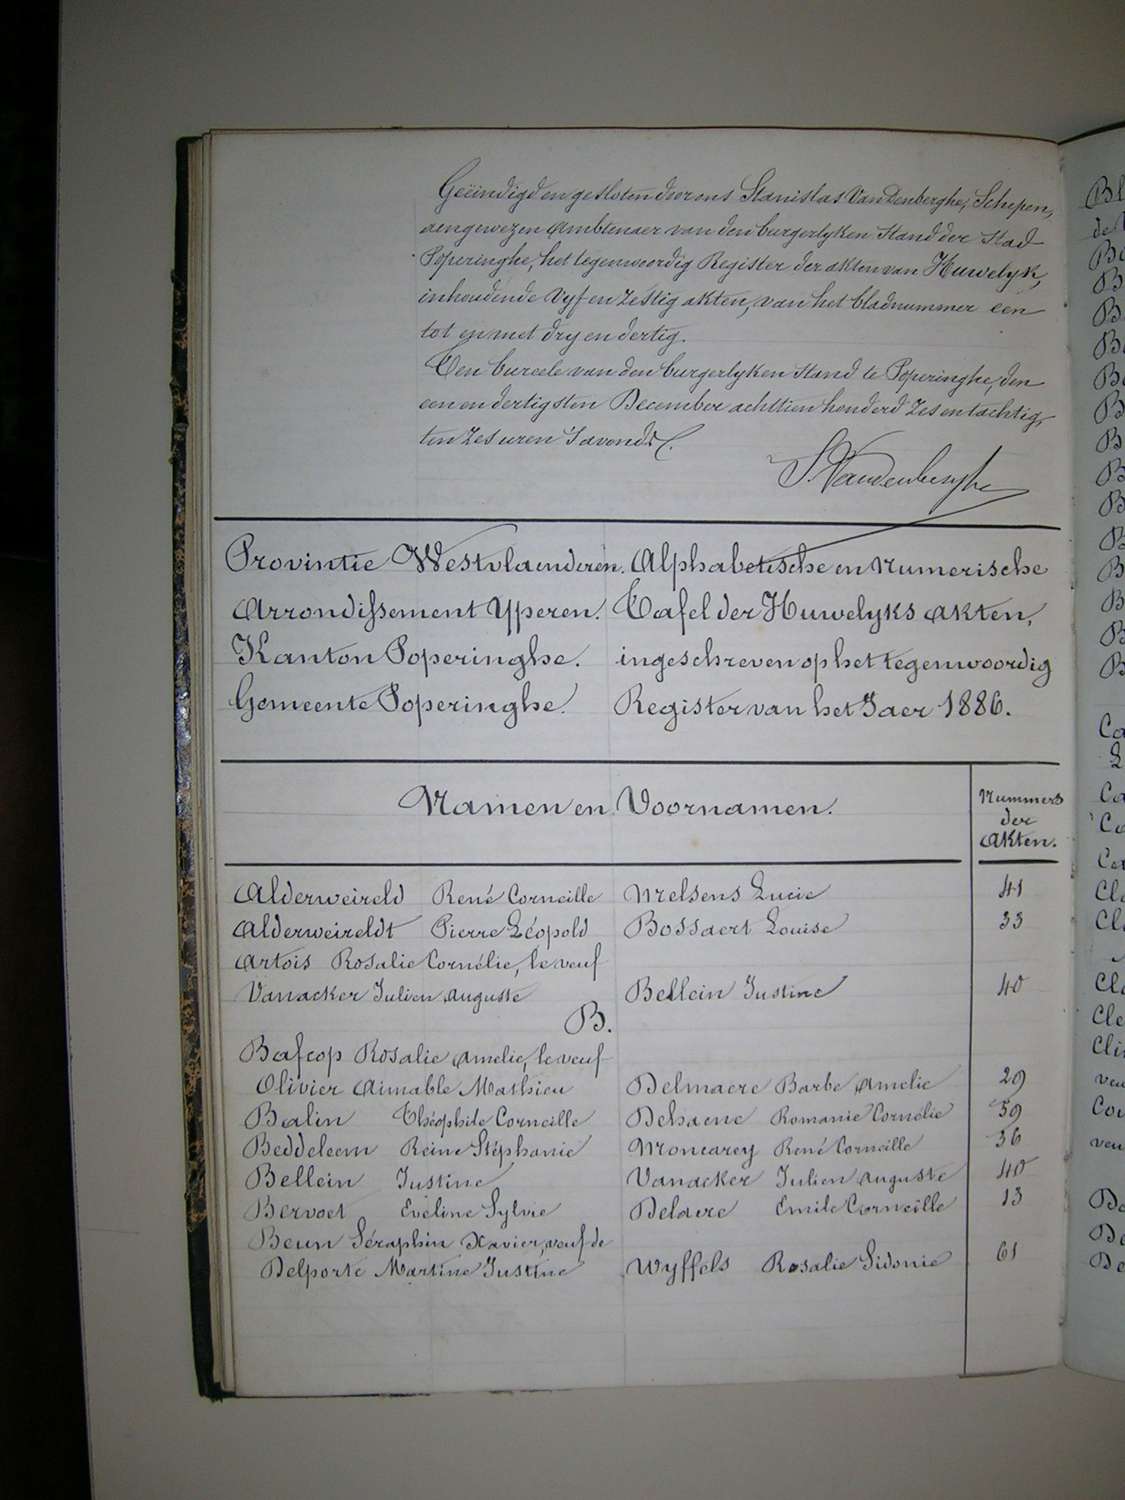 Geëindigd en gesloten door ons Stanislas Van Denberghe, Schepen,
aengewezen Ambtenaer van den burgerlyken Stand der Stad
Poperinghe, het tegenwoordig Register der akten van Huwelyk,
inhoudende vyf en zestig akten, van het bladnummer een
tot en met dry en dertig.
Ten bureele van den burgerlyken Stand te Poperinghe, den
een en dertigsten December achttien honderd zes en tachtig,
ten zes uren 's avonds
S. Vandenberghe
Provintie Westvlaenderen. Alphabetische en Numerische
Arrondissement Yperen. Tafel der Huwelyks akten,
Kanton Poperinghe. ingeschreven op het tegenwoordig
Gemeente Poperinghe. Register van het Jaer 1886.
Namen en Voornamen. Nummers
der
Akten.
Alderweireld René Corneille Melsens Lucie 41
Alderweireldt Pierre Léopold Bossaert Louise 33
Artois Rosalie Cornélie, le veuf
Vanacker Julien Auguste Bellein Justine 40
B.
Bafcop Rosalie Amelie, le veuf
Olivier Aimable Mathieu Delmaere Barbe Amelie 29
Balin Théophile Corneille Dehaene Romanie Cornélie 59
Beddeleem Reine Stéphanie Moncarey René Corneille 36
Bellein Justine Vanacker Julien Auguste 40
Bervoet Eveline Sylvie Delaere Emile Corneille 13
Beun Séraphin Xavier, veuf de
Delporte Martine Justine Wyffels Rosalie Sidonie 61